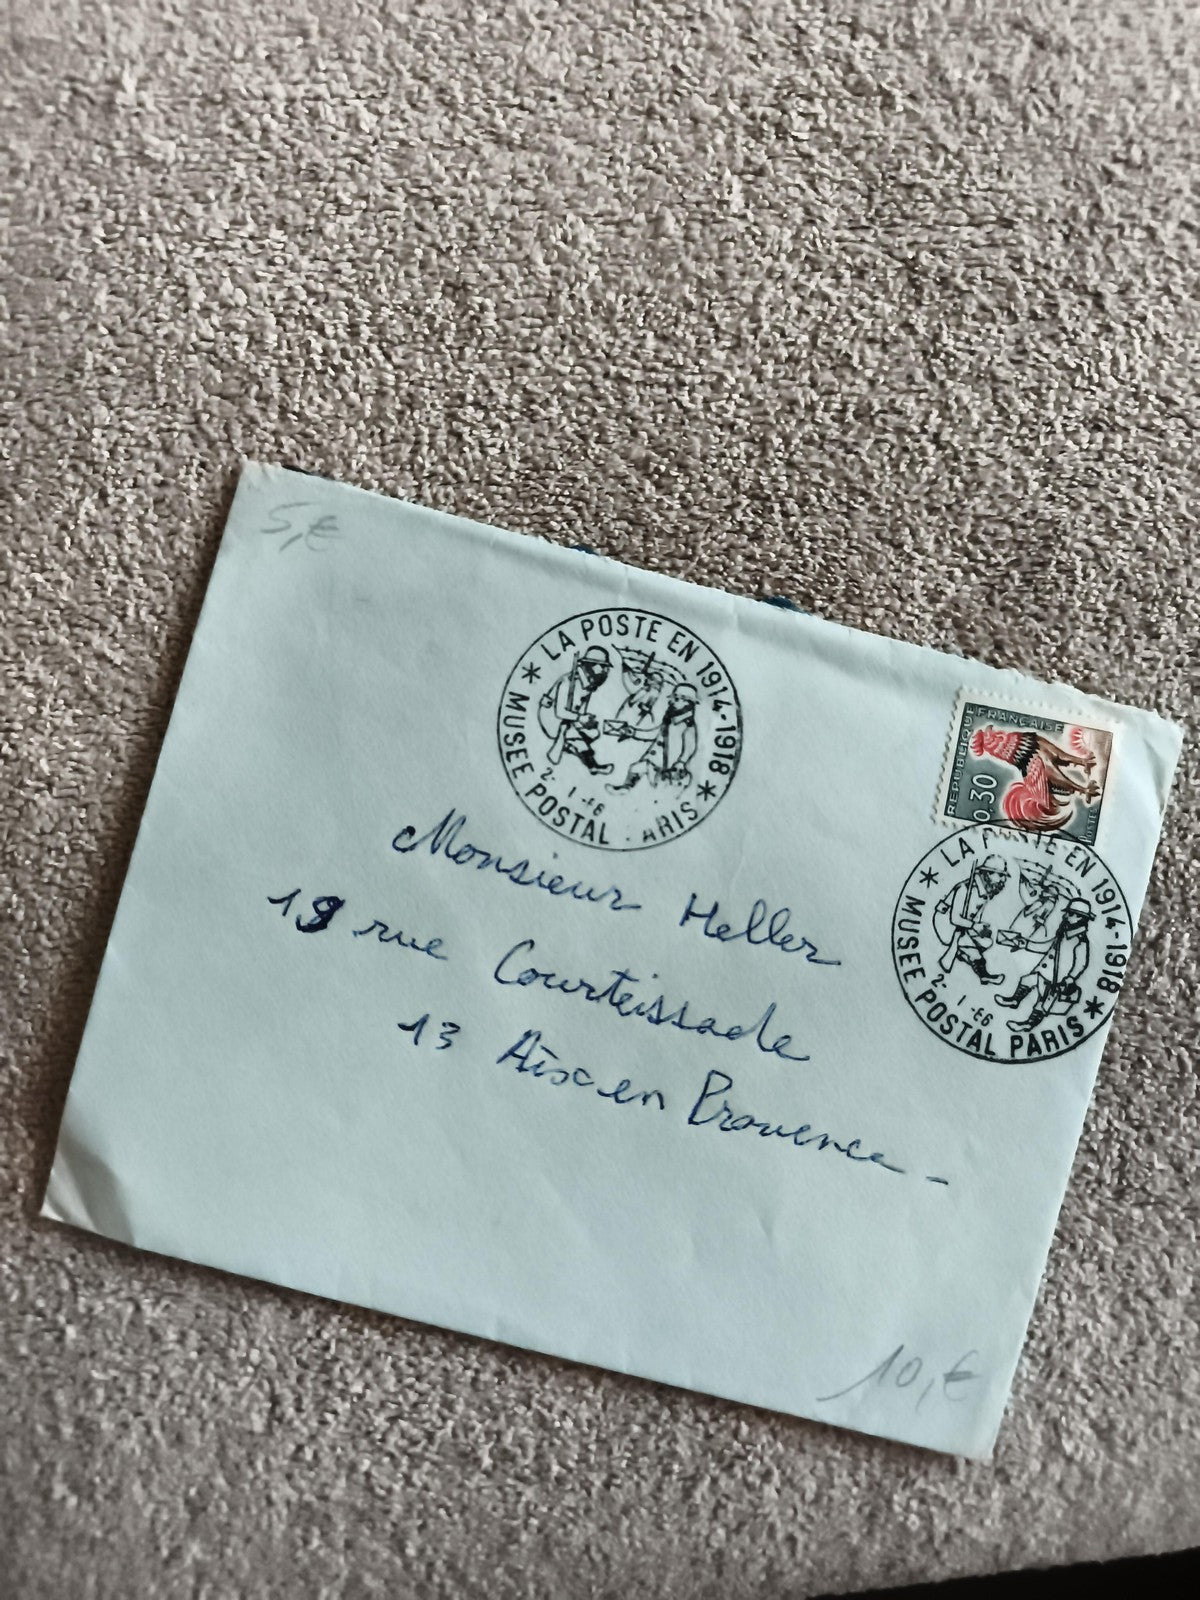 5,€
* LA POSTE EN 1914-1918 *
MUSEE POSTAL PARIS
2- 1-66
REPUBLIQUE FRANÇAISE
0,30
POSTES
* LA POSTE EN 1914-1918 *
MUSEE POSTAL PARIS
2- 1-66
Monsieur Heller
19 rue Courteissade
13 Aix en Provence -
10,€